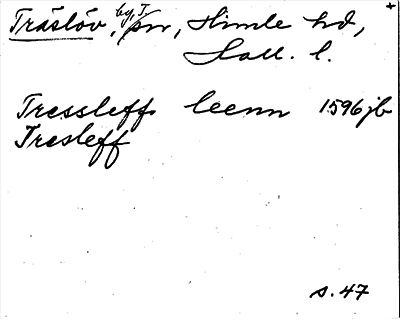 Träslöv, by, T. sn, Himle hd,
Hall. l.
Tressleffs leenn 1596 jb
Tresleff
s. 47